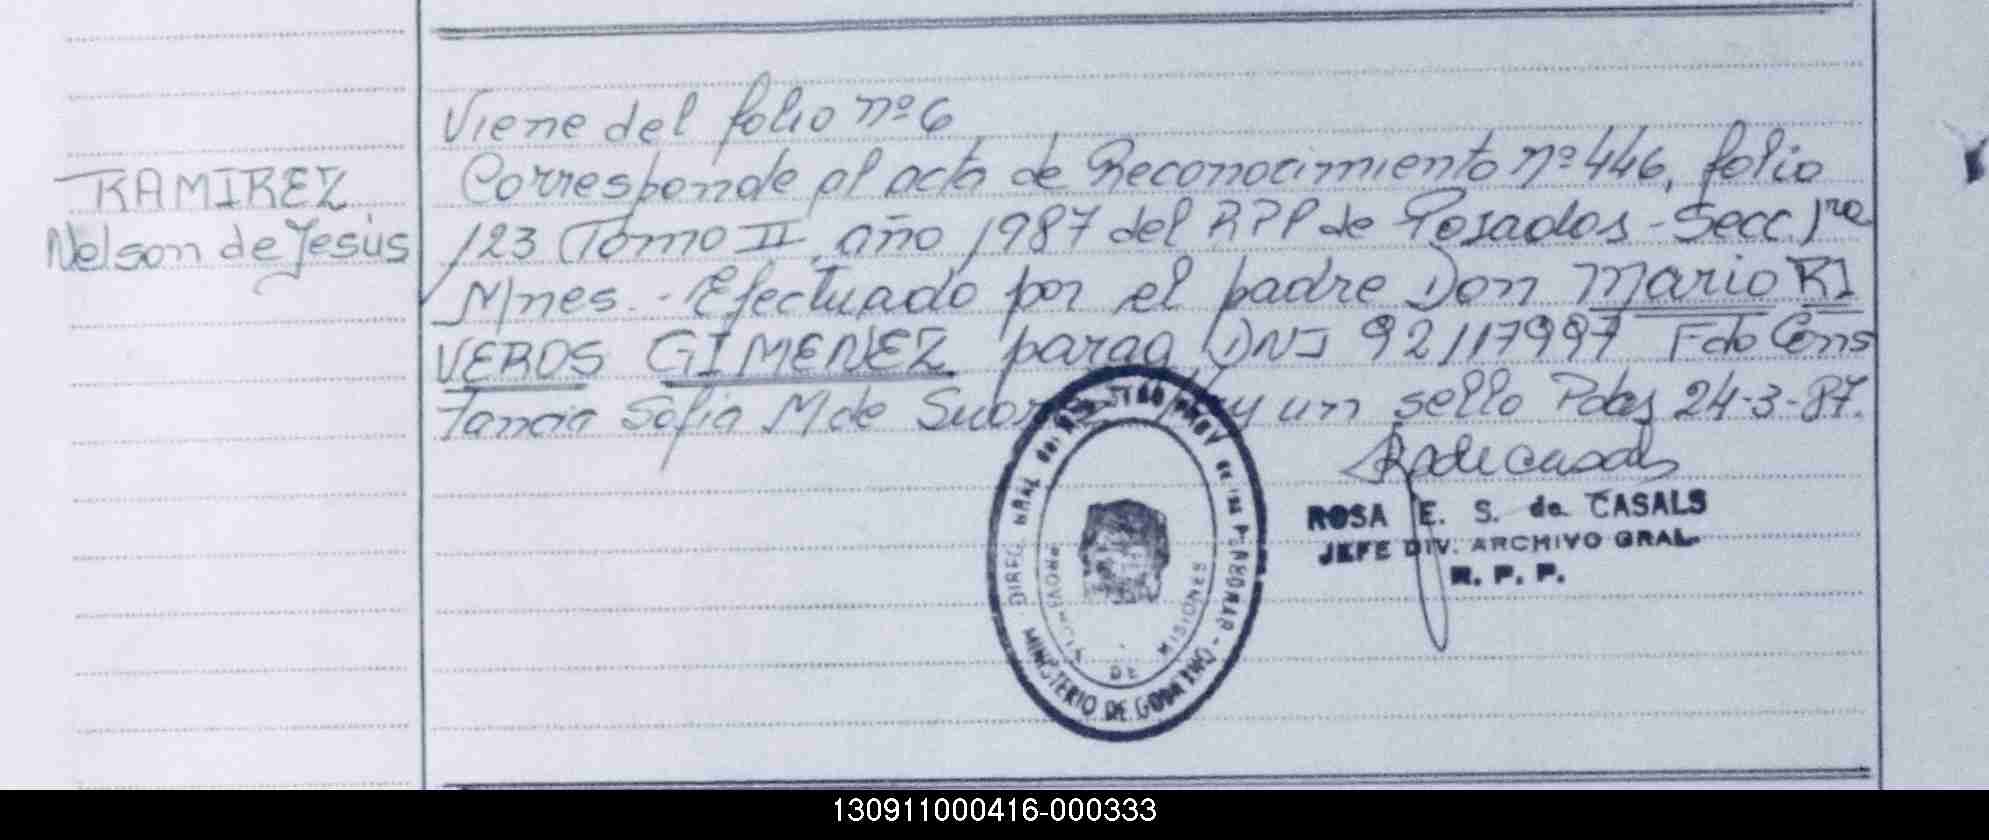 Viene del folio nº 6
RAMIREZ
Nelson de Jesús
Corresponde al acta de Reconocimiento nº 446, folio
123 Tomo II, año 1987 del RPP de Posadas - Secc. 1ra
Mnes. - Efectuado por el padre Don Mario RI
VEROS GIMENEZ parag DNI 92117997 Fdo Cons
tancia Sofia M de Hay un sello Pdas 24-3-87.
ROSA E. S. de CASALS
JEFE DIV. ARCHIVO GRAL.
R. P. P.
DIREC. GRAL del PROV de las PERSONAS - MINISTERIO DE GOBIERNO
PROVINCIA DE MISIONES
130911000416-000333